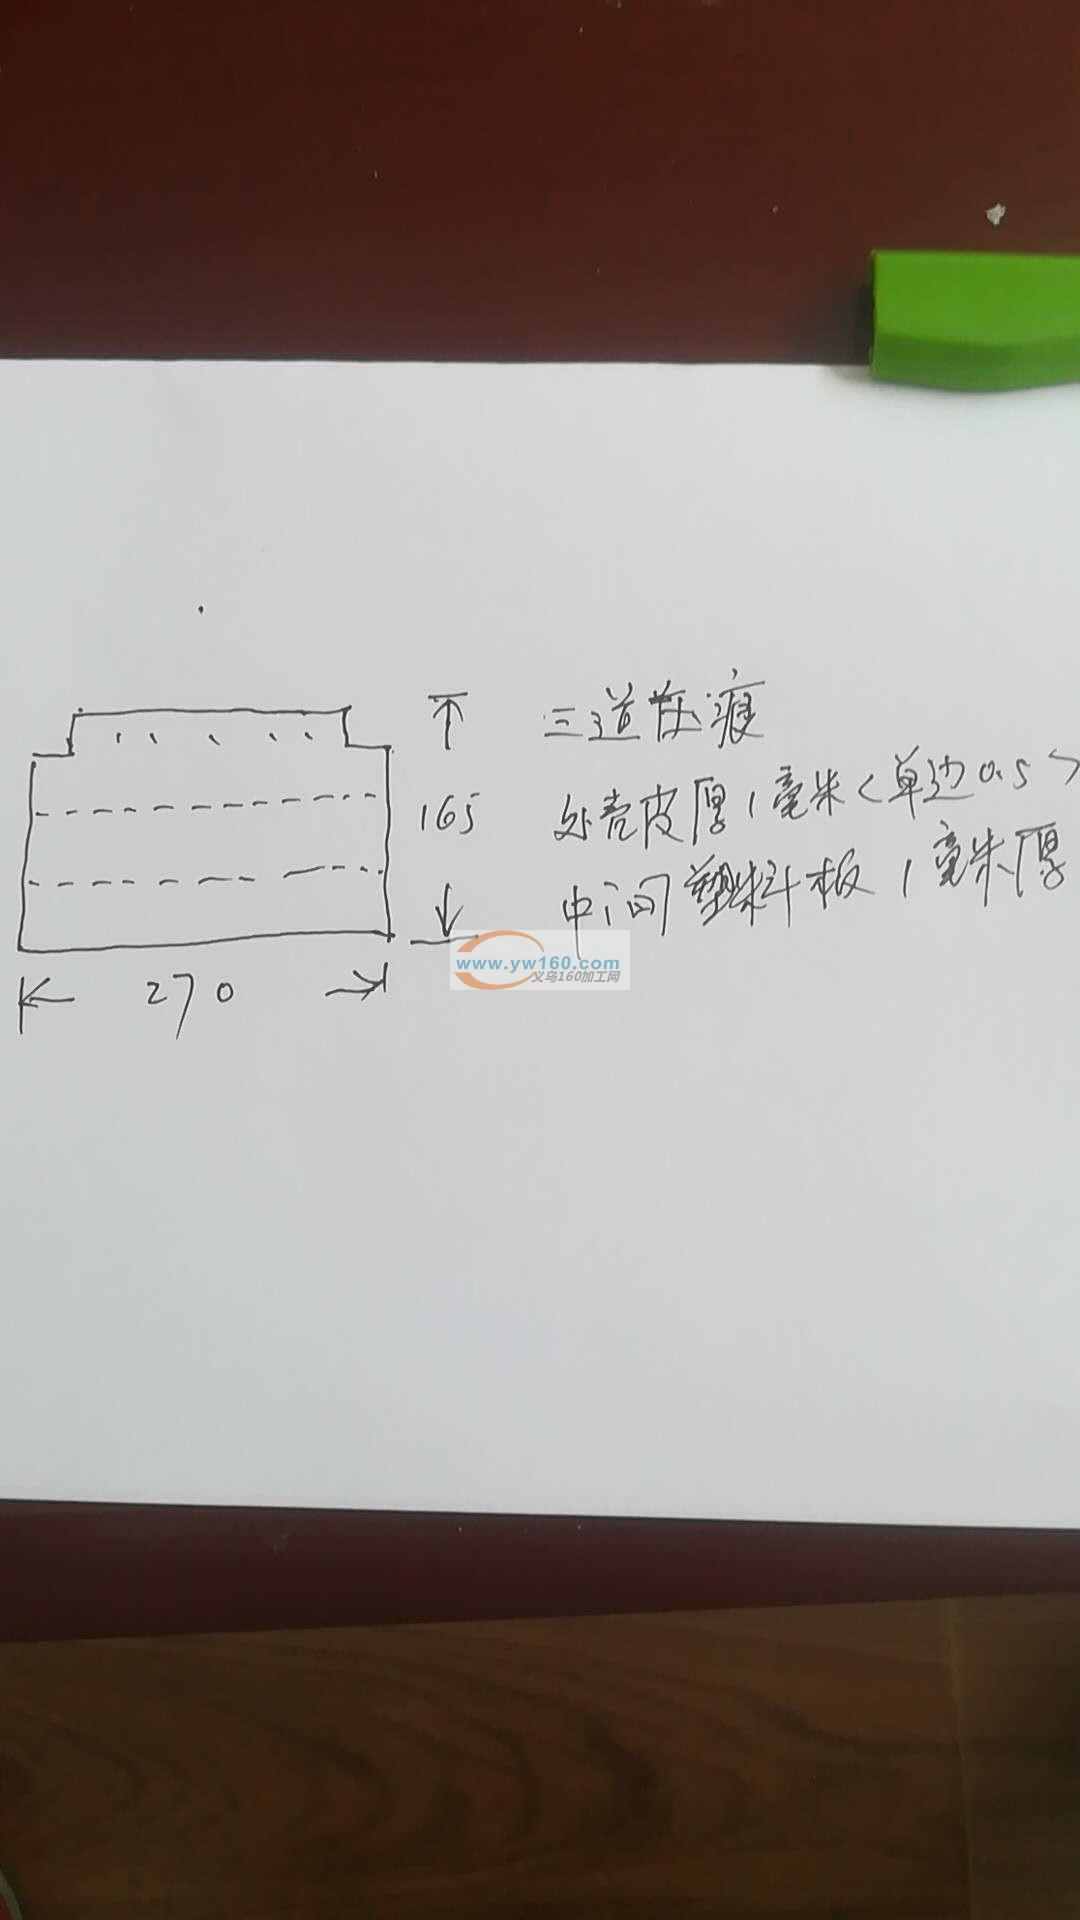 三道压痕
165
外壳皮厚1毫米<单边0.5>
中间塑料板1毫米厚
www.yw160.com
义乌160加工网
270